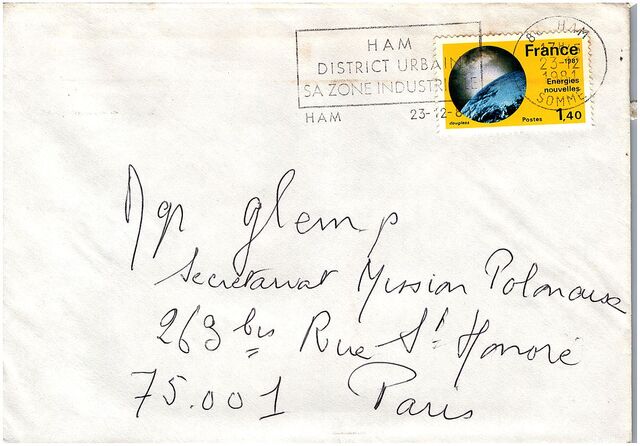 HAM
DISTRICT URBAIN
SA ZONE INDUSTRI
HAM 23-12-8
80 HAM
17H
23-12
1981
SOMME
France
1981
Energies
nouvelles
1,40
Postes
douglass
Mgr Glemp
Secrétariat Mission Polonaise
263 bis Rue St Honoré
75.001 Paris